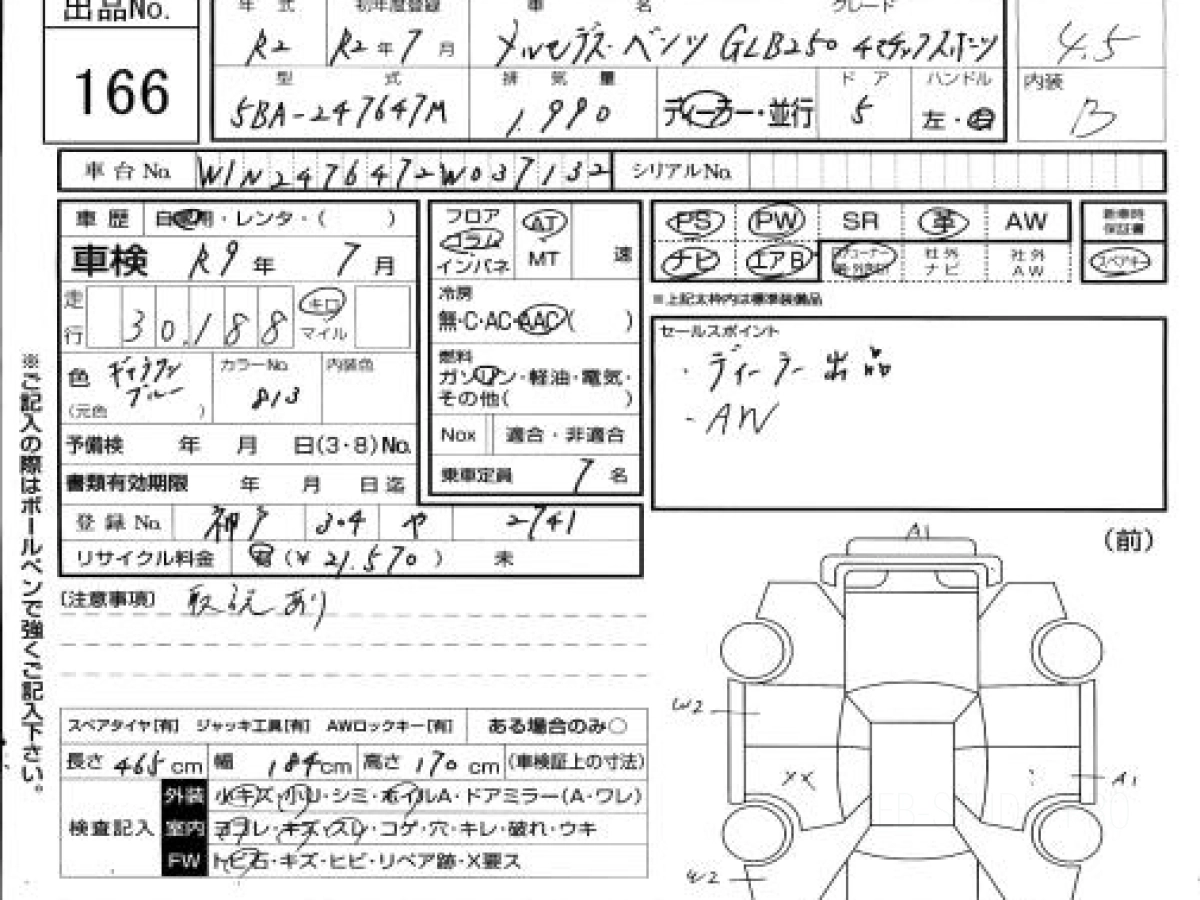 出品No.
166
年式 初年度登録 車名 グレード
R2 R2年7月 メルセデス・ベンツ GLB250 4マチックスポーツ 4.5
型式 排気量 ドア ハンドル 内装
5BA-247647M 1,990 ディーラー・並行 5 左・右 B
車台No. W1N2476472W037132 シリアルNo.
車歴 自家用・レンタ・( )
車検 R9年7月
走行 30,188 キロ マイル
色 ギャラクシーブルー カラーNo. 813 内装色
(元色 )
予備検 年 月 日(3・8)No.
書類有効期限 年 月 日迄
登録No. 神戸 304 や 2741
リサイクル料金 有(¥21,570) 未
フロア
コラム
インパネ
AT
MT
速
冷房
無・C・AC・AAC( )
燃料
ガソリン・軽油・電気・
その他( )
Nox 適合・非適合
乗車定員 7名
PS PW SR 革 AW 新車時保証書
ナビ エアB 社外ナビ 社外AW スペアキー
※上記太枠内は標準装備品
セールスポイント
・ディーラー出品
・AW
[注意事項] 取説あり
※ご記入の際はボールペンで強くご記入下さい。
スペアタイヤ[有] ジャッキ工具[有] AWロックキー[有] ある場合のみ○
長さ 465cm 幅 184cm 高さ 170cm (車検証上の寸法)
検査記入
外装 小キズ・小U・シミ・ホイルA・ドアミラー(A・ワレ)
室内 ヨゴレ・キズ・スレ・コゲ・穴・キレ・破れ・ウキ
FW トビ石・キズ・ヒビ・リペア跡・X要ス
(前)
A1
W2
XX
A1
W2